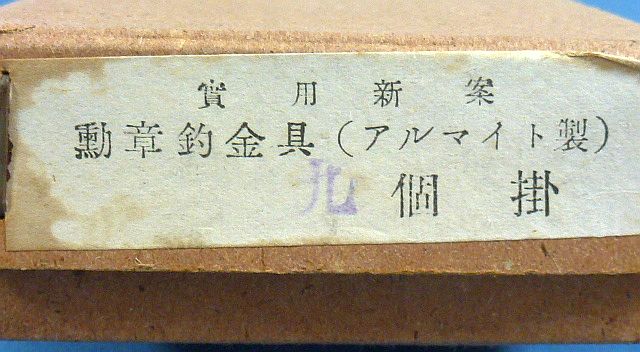 實用新案
勳章釣金具(アルマイト製)
九個掛